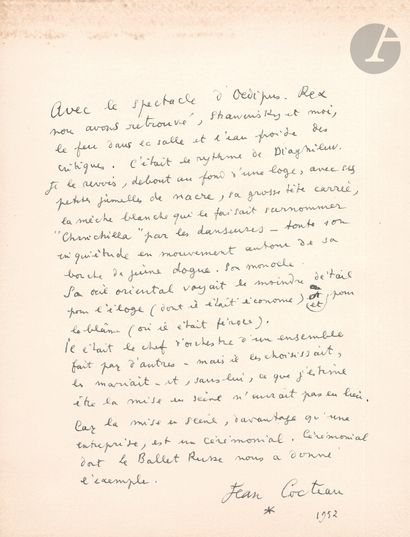 Avec le spectacle d'Oedipus-Rex
nous avons retrouvé, Strawinsky et moi,
le feu dans la salle et l'eau froide des
critiques. C'était le rythme de Diaghilew.
Je le revois, debout au fond d'une loge, avec ses
petites jumelles de nacre, sa grosse tête carrée,
la mèche blanche qui le faisait surnommer
"Chinchilla" par les danseuses – toute son
inquiétude en mouvement autour de sa
bouche de jeune dogue. Son monocle.
Son oeil oriental voyait le moindre détail
pour l'éloge (dont il était économe) et pour
le blâme (où il était féroce).
Il était le chef d'orchestre d'un ensemble
fait par d'autres – mais il les choisissait,
les mariait – et, sans lui, ce que j'estime
être la mise en scène n'aurait pas eu lieu.
Car la mise en scène, davantage qu'une
entreprise, est un cérémonial. Cérémonial
dont le Ballet Russe nous a donné
l'exemple.
Jean Cocteau
*
1952